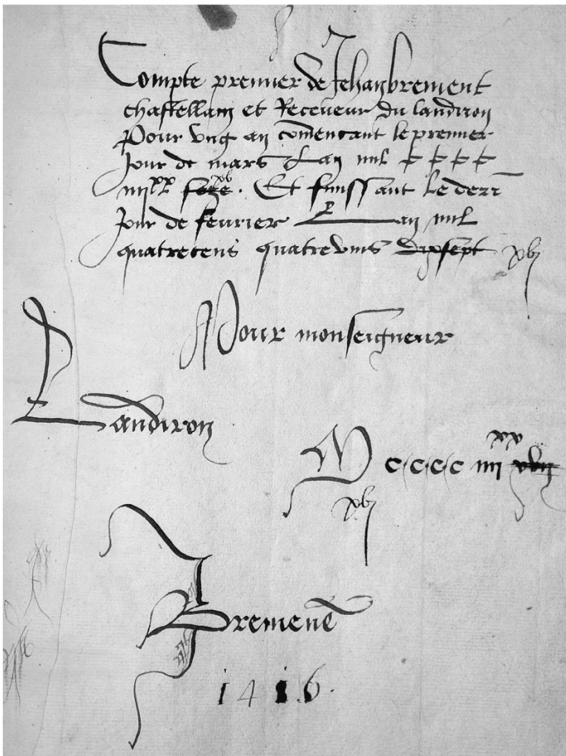 Compte premier de Jehan brement
chastellain et Receveur du landiron
Pour ung an comencant le premier
Jour de mars Lan mil cccc
iiijxx seze xv. Et finissant le derr
Jour de fevrier Lan mil
quatrecens quatrevins dixsept xvj
Pour monseigneur
Landiron
M cccc iiij xx xvij
xvj
J Bremēt
1416.